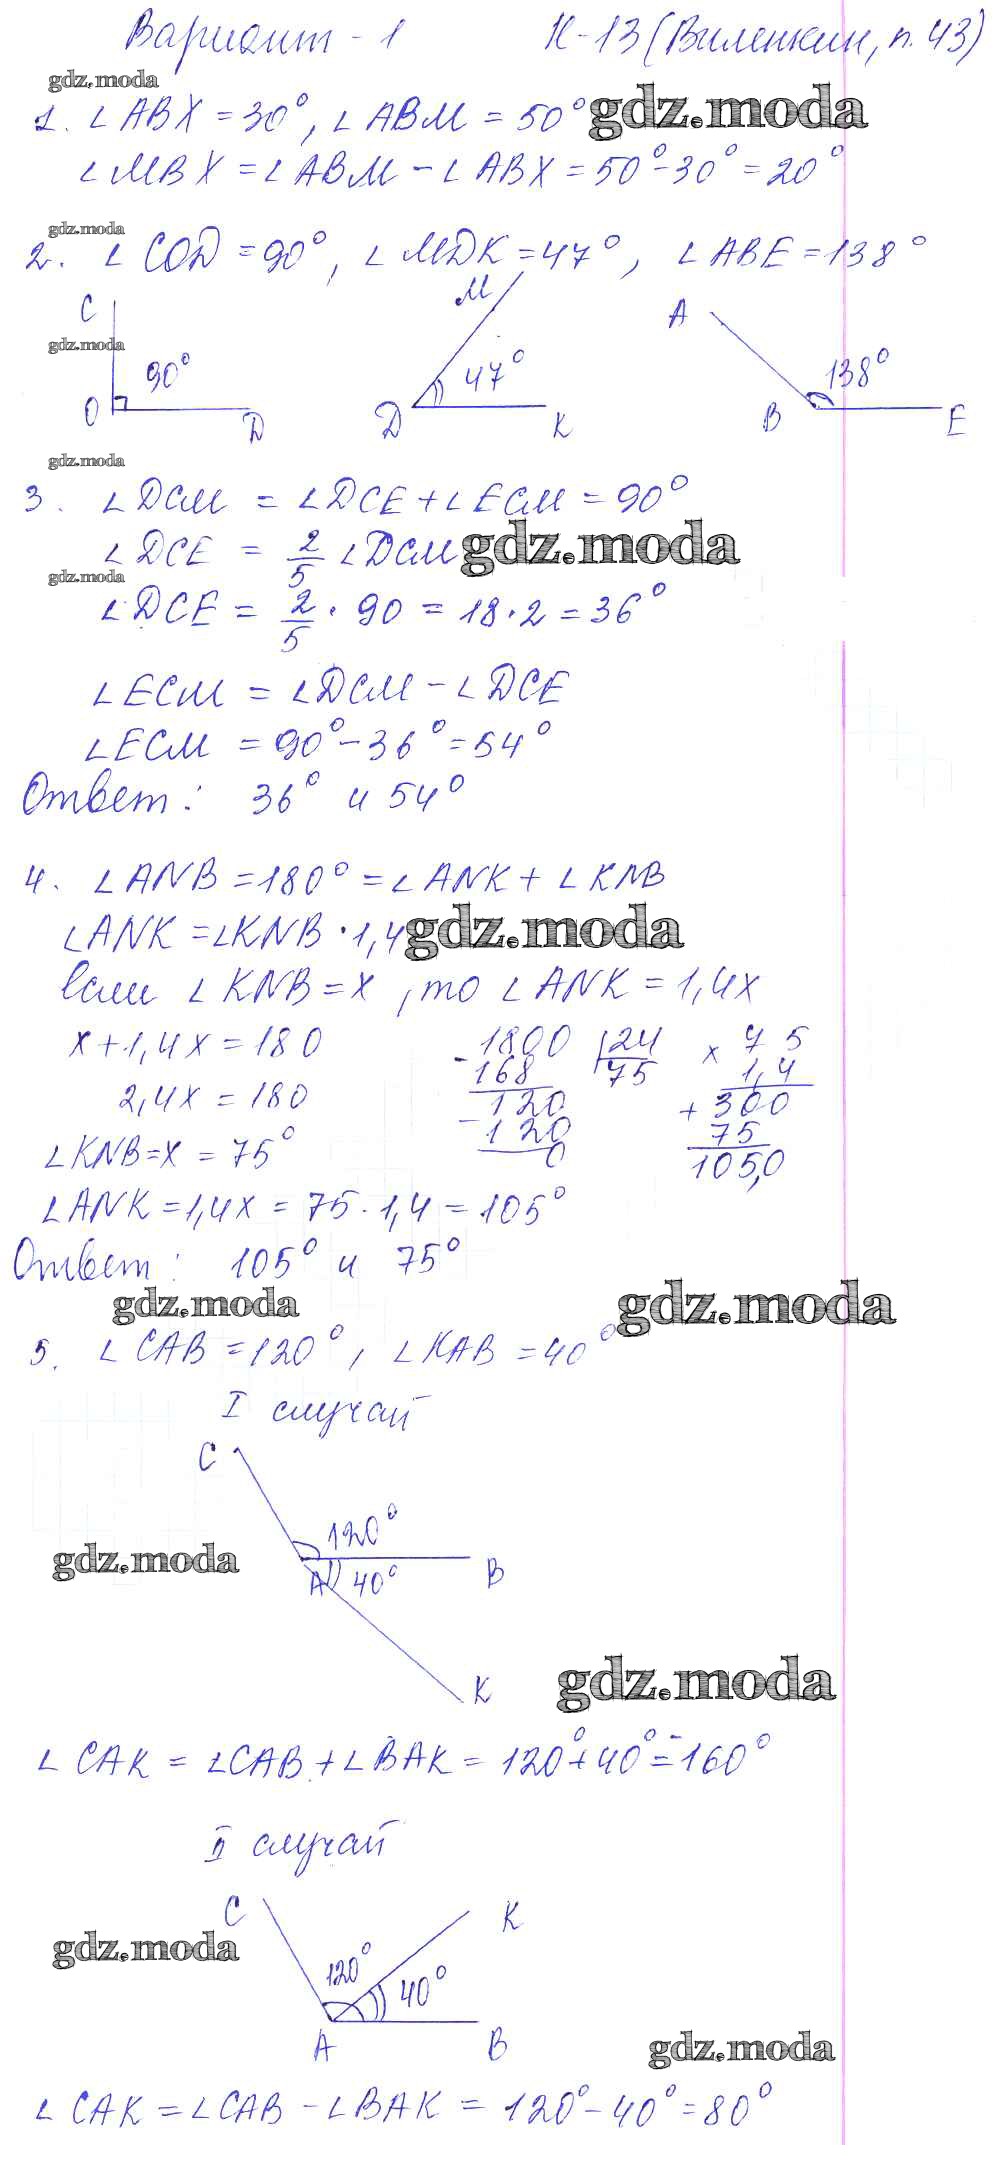 Вариант - 1 К-13 (Виленкин, п. 43)
gdz.moda
1. ∠ABX = 30°, ∠ABM = 50° gdz.moda
∠MBX = ∠ABM - ∠ABX = 50° - 30° = 20°
gdz.moda
2. ∠COD = 90°, ∠MDK = 47°, ∠ABE = 138°
C M A
gdz.moda
90° 47° 138°
O D D K B E
gdz.moda
3. ∠DCM = ∠DCE + ∠ECM = 90°
∠DCE = 2/5 ∠DCM gdz.moda
gdz.moda
∠DCE = 2/5 · 90 = 18 · 2 = 36°
∠ECM = ∠DCM - ∠DCE
∠ECM = 90° - 36° = 54°
Ответ: 36° и 54°
4. ∠ANB = 180° = ∠ANK + ∠KNB
∠ANK = ∠KNB · 1,4 gdz.moda
если ∠KNB = x, то ∠ANK = 1,4x
x + 1,4x = 180 -1800 24 x 75
168 75 1,4
2,4x = 180 120 + 300
-120 75
∠KNB = x = 75° 0 105,0
∠ANK = 1,4x = 75 · 1,4 = 105°
Ответ: 105° и 75°
gdz.moda gdz.moda
5. ∠CAB = 120°, ∠KAB = 40°
I случай
C
120°
gdz.moda
A 40° B
K
gdz.moda
∠CAK = ∠CAB + ∠BAK = 120° + 40° = 160°
II случай
C K
gdz.moda
120° 40°
A B
gdz.moda
∠CAK = ∠CAB - ∠BAK = 120° - 40° = 80°